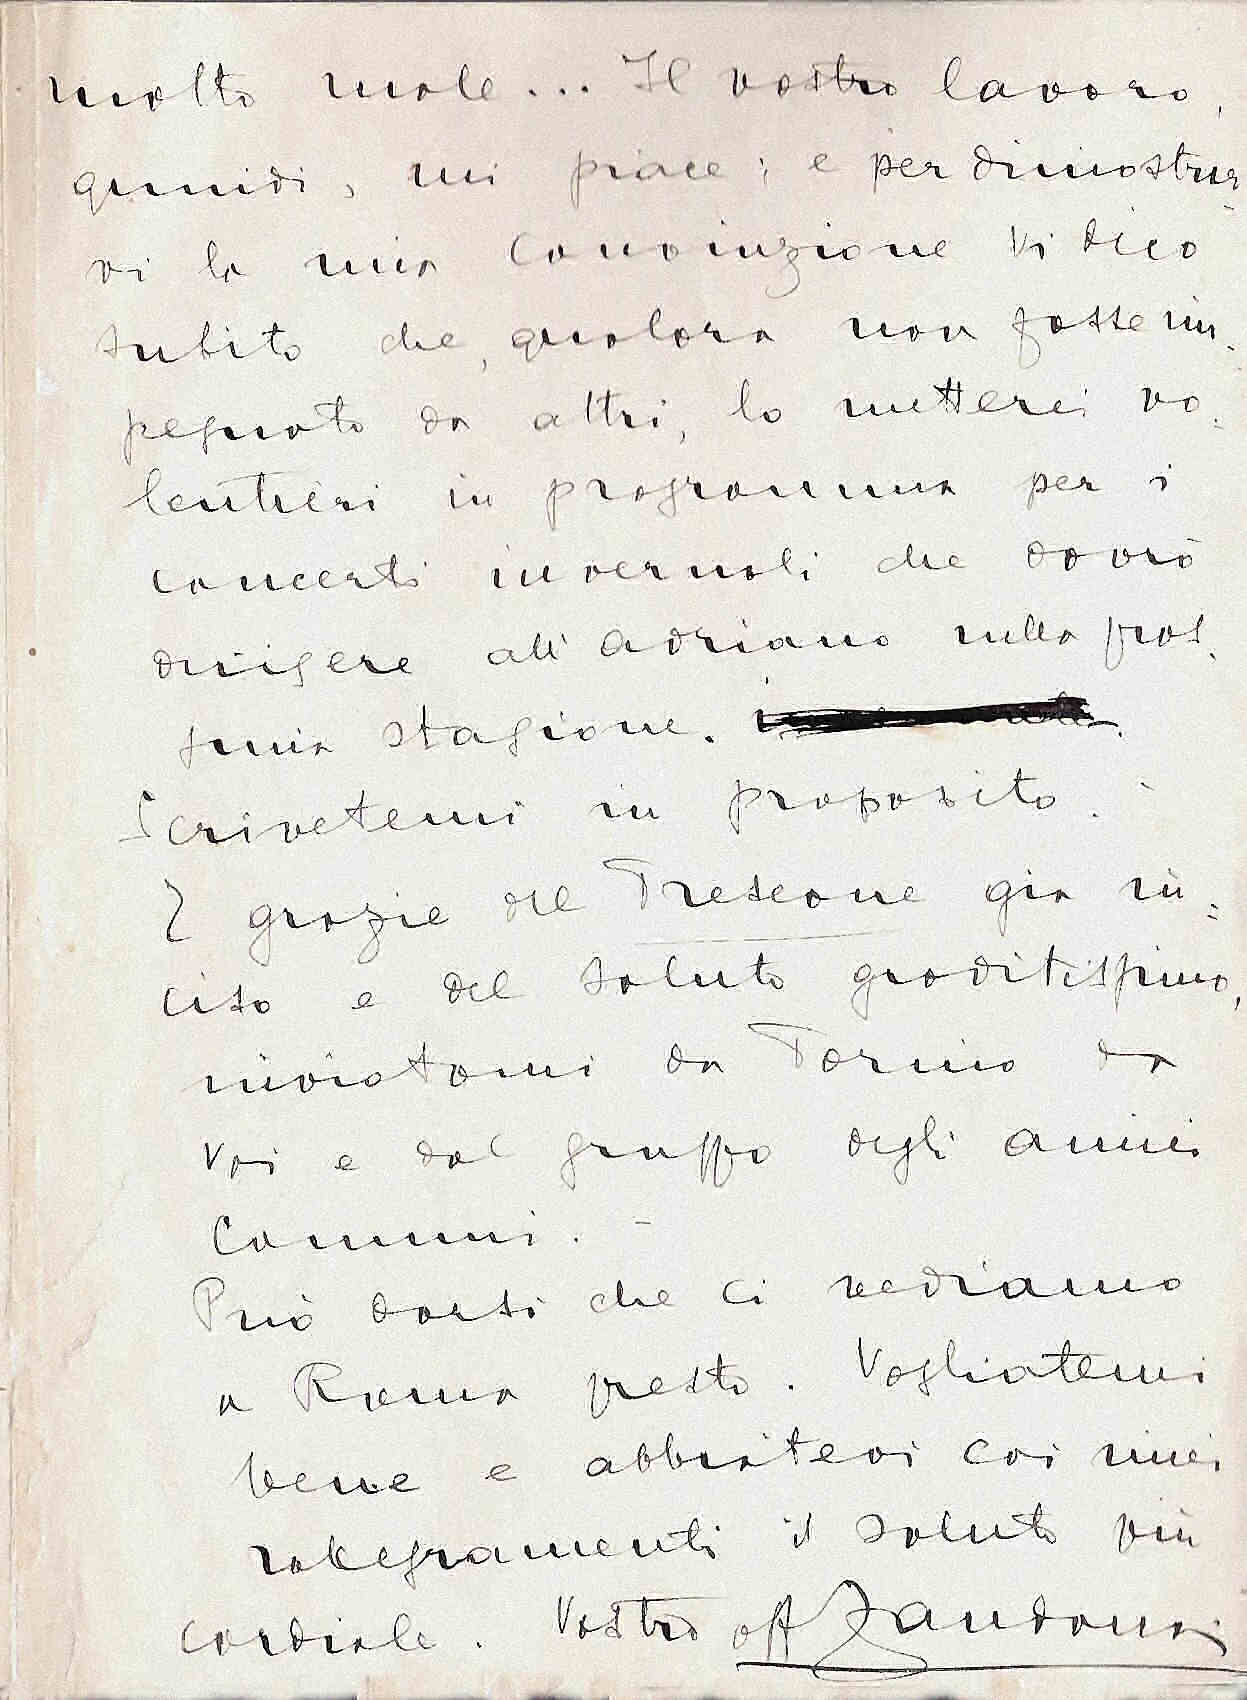 molto male... Il vostro lavoro,
quindi, mi piace; e per dimostrar
vi la mia convinzione vi dico
subito che, qualora non fosse im-
pegnato da altri, lo metterei vo-
lentieri in programma per i
concerti invernali che dovrò
dirigere all'Adriano nella pros-
sima stagione.
Scrivetemi in proposito. -
E grazie del Trescone già in=
ciso e del saluto graditissimo,
inviatomi da Torino da
voi e dal gruppo degli amici
comuni. -
Può darsi che ci vediamo
a Roma presto. Vogliatemi
bene e abbiatevi coi miei
rallegramenti il saluto più
cordiale. Vostro aff Zandonai